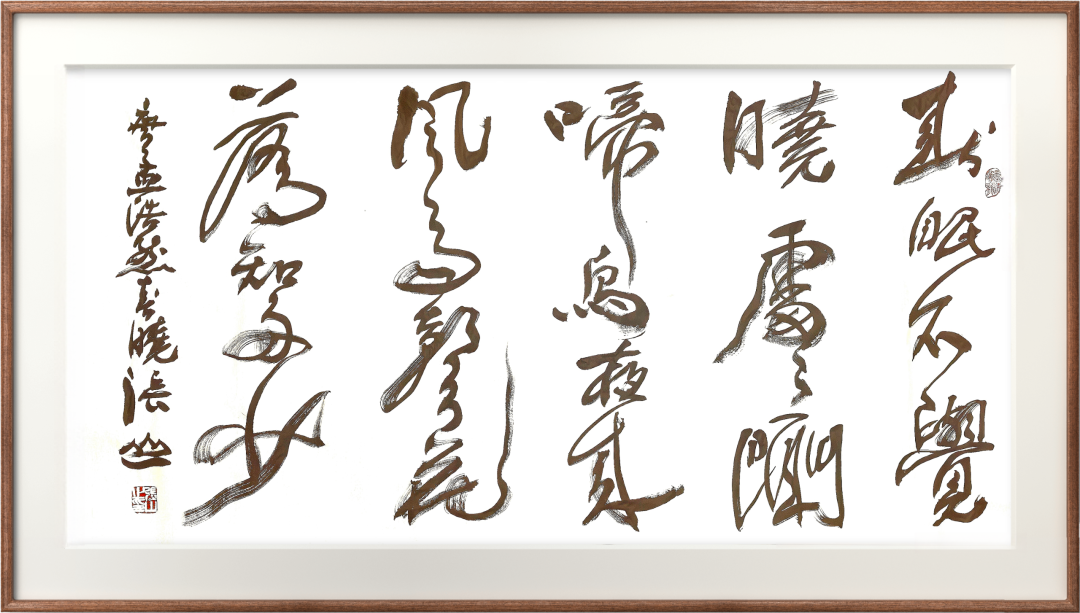 春眠不覺
曉處々聞
啼鳥夜來
風雨聲花
落知多少
孟浩然春曉 張山